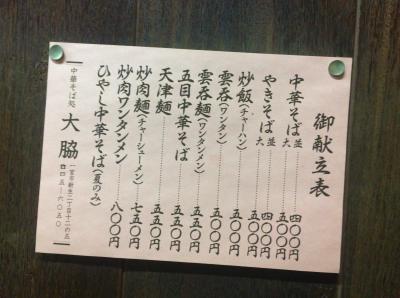 御献立表
中華そば 並 四〇〇円
大 五〇〇円
やきそば 並 四〇〇円
大 五〇〇円
炒飯(チャーハン) 五〇〇円
雲呑(ワンタン) 五〇〇円
雲呑麺(ワンタンメン) 五五〇円
五目中華そば 五五〇円
天津麺 五五〇円
炒肉麺(チャーシューメン) 七五〇円
炒肉ワンタンメン 八〇〇円
ひやし中華そば(夏のみ)
中華そば処 大脇
一宮市新生二丁目十二の五
四五ー六〇五〇